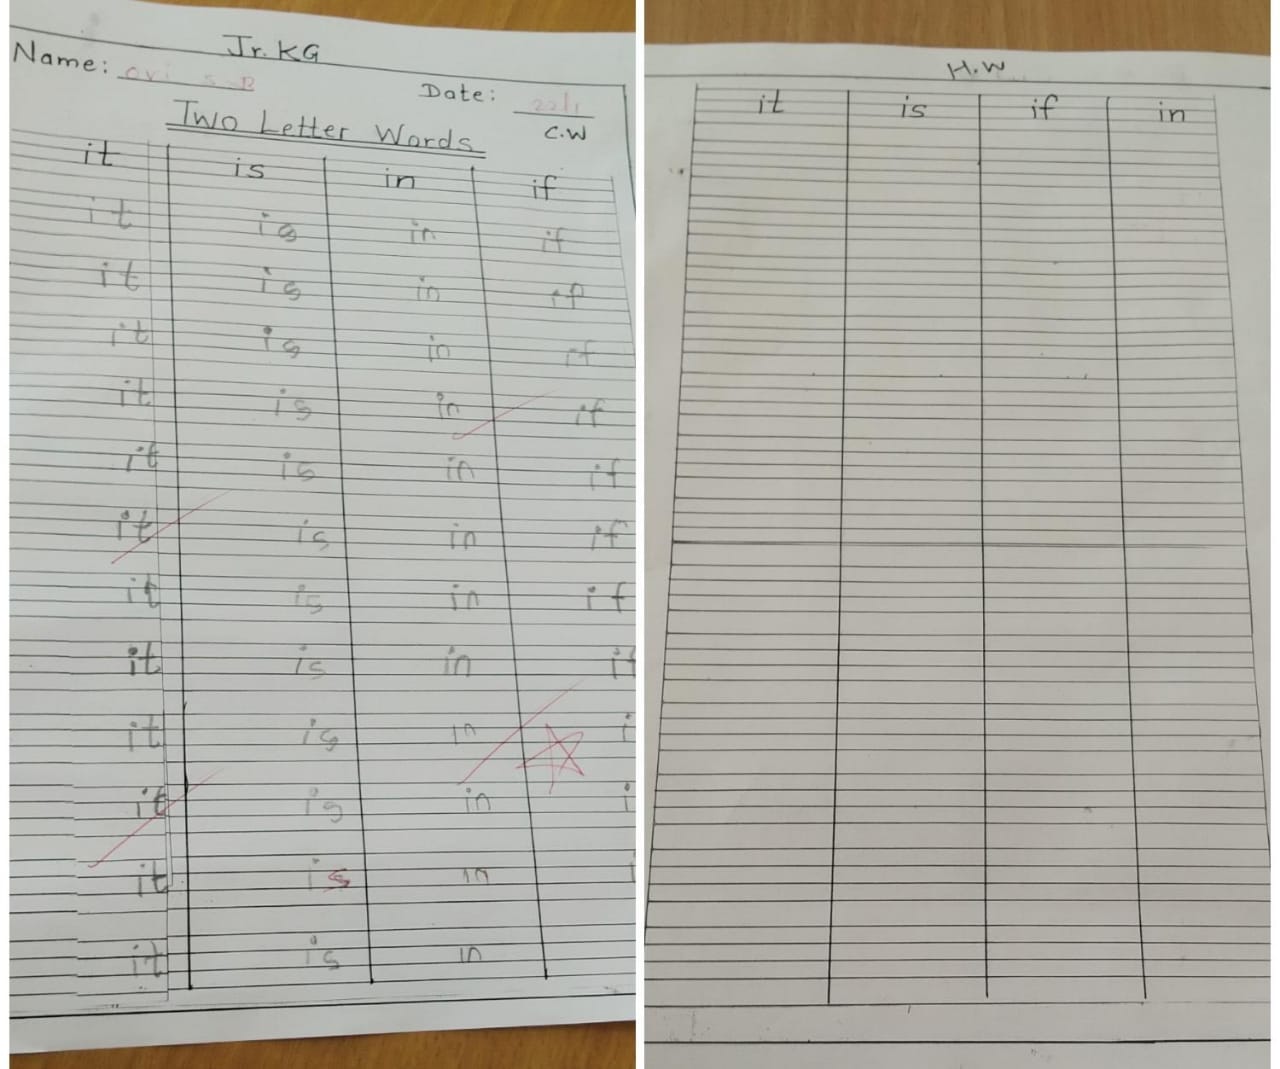 Jr. KG
Name: ovi s B
Date: 22/1
C.W
Two Letter Words
it is in if
it is in if
it is in if
it is in if
it is in if
it is in if
it is in if
it is in if
it is in if
it is in i
it is in i
it is in i
it is in
H.W
it is if in